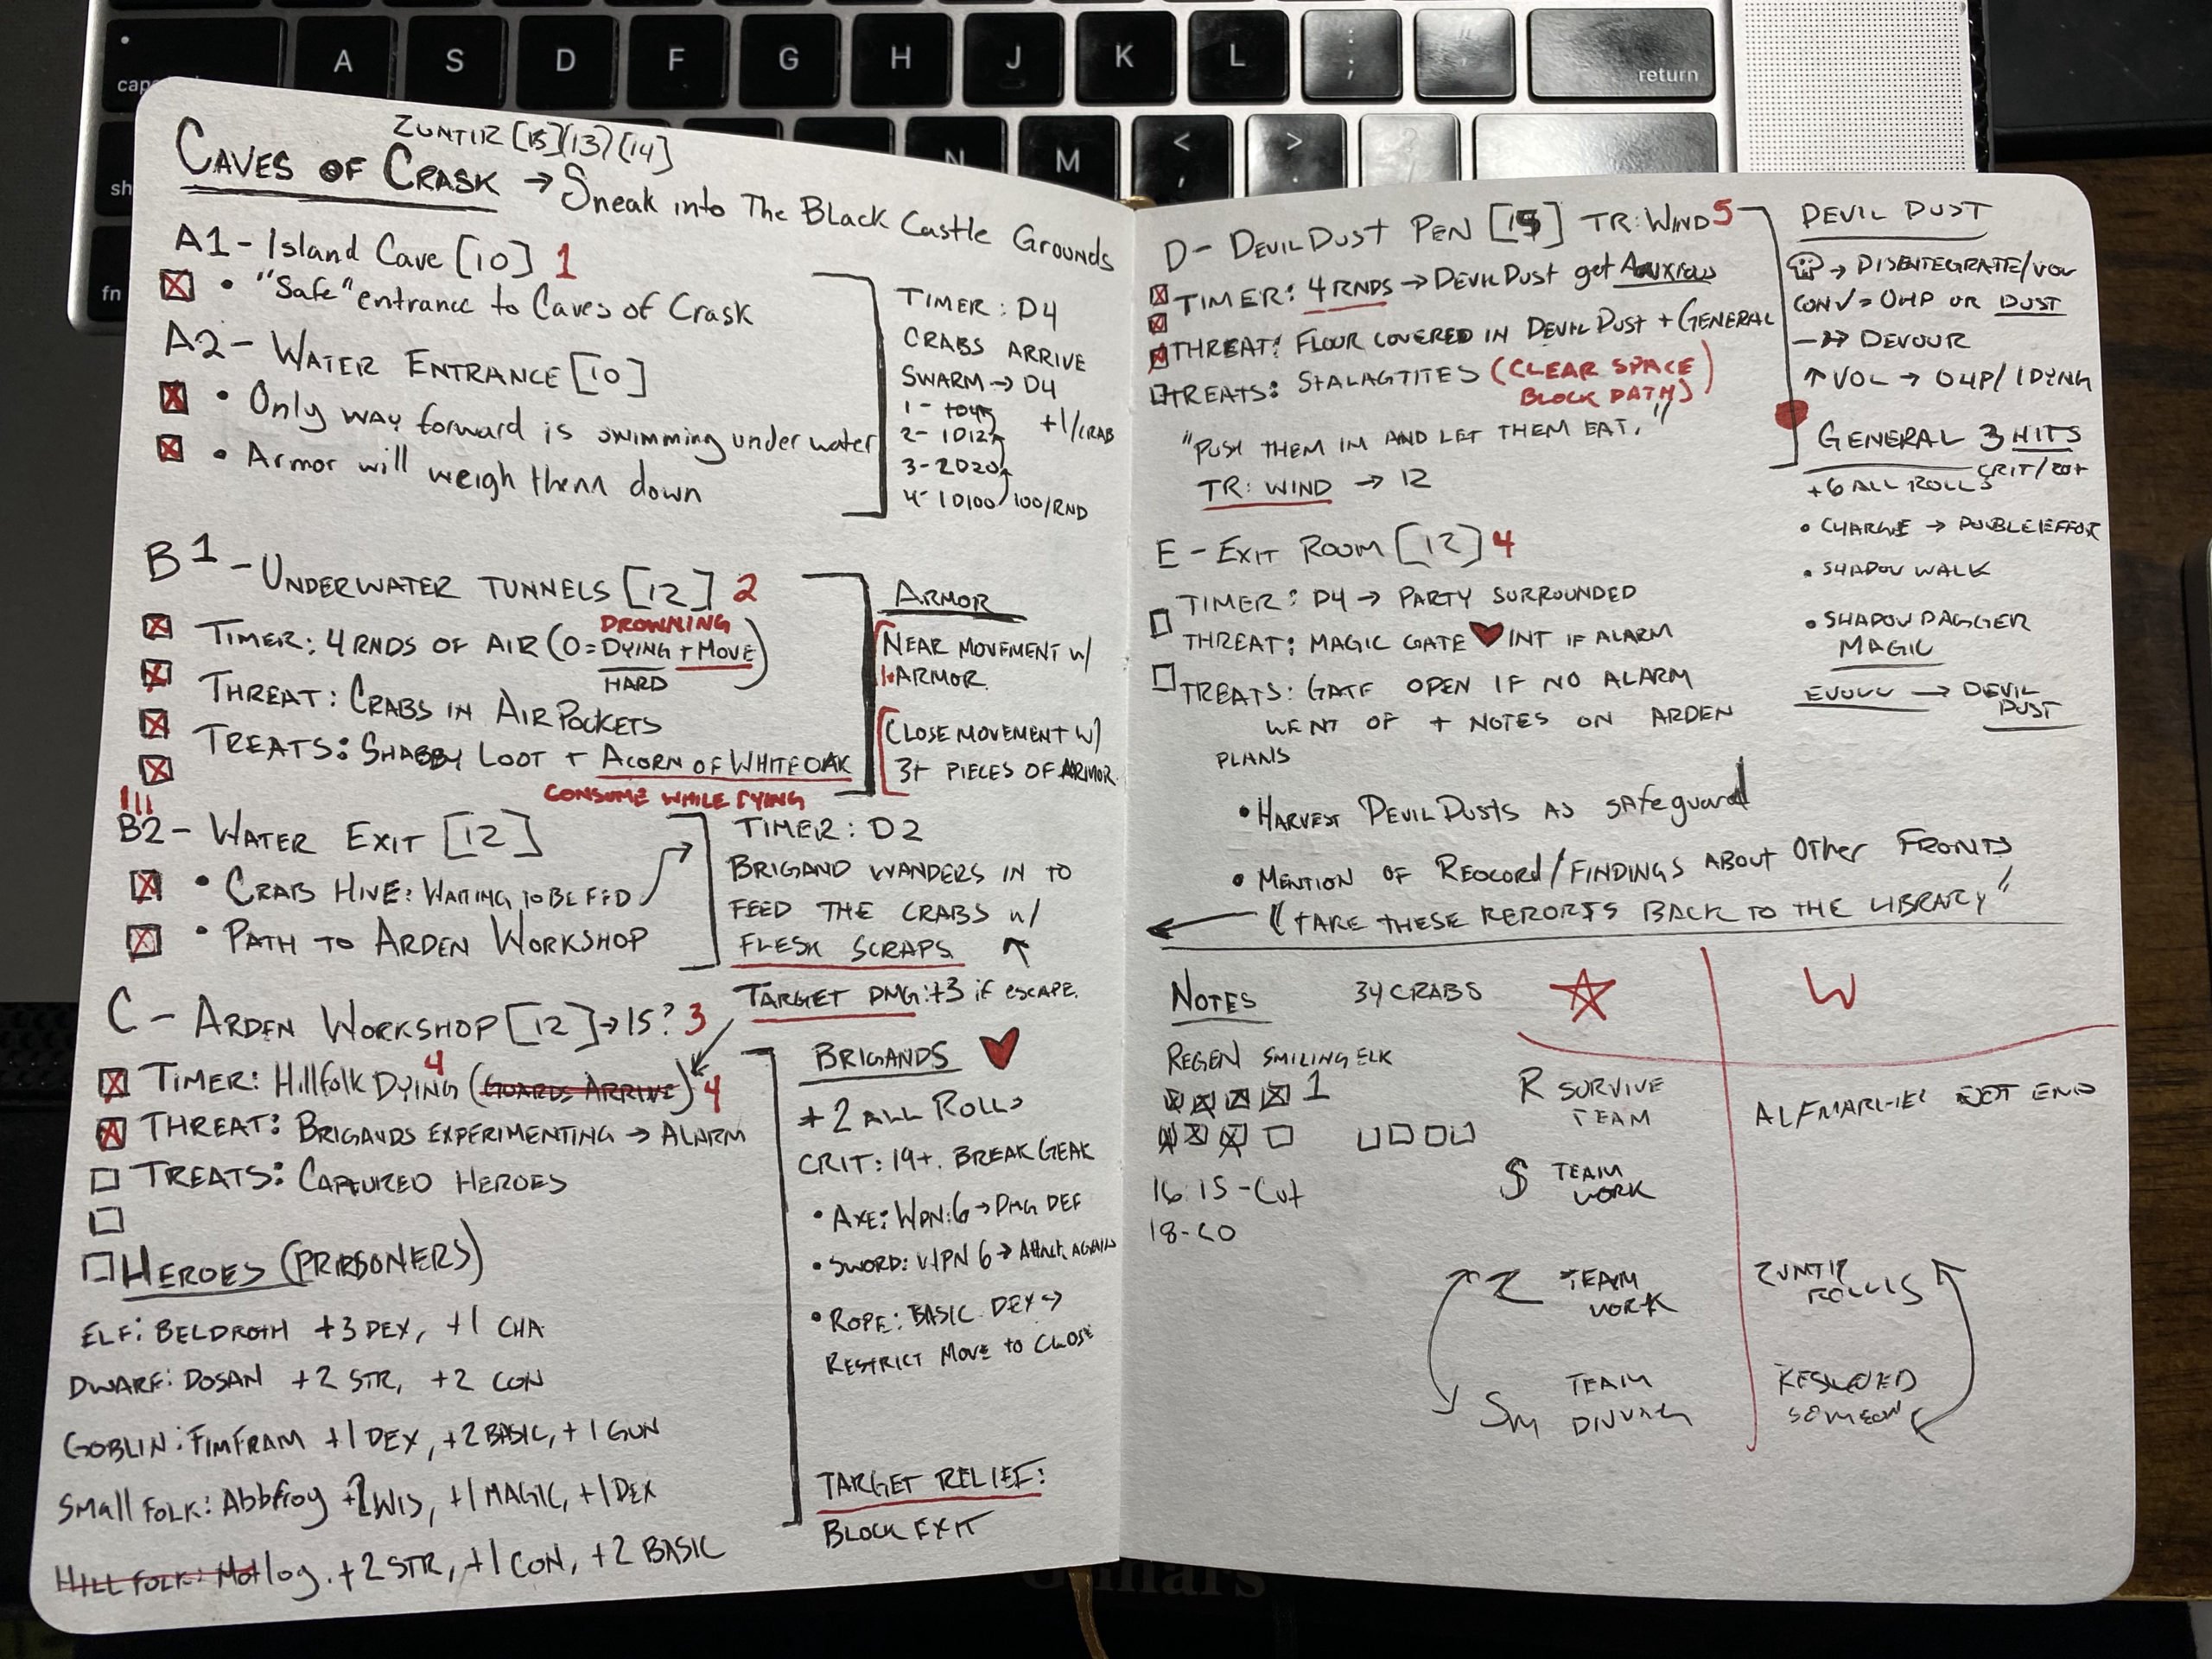 ZUNTIR [15] (13) [14]
CAVES OF CRASK → Sneak into The Black Castle Grounds
A1 - Island Cave [10] 1
• "Safe" entrance to Caves of Crask
A2 - WATER ENTRANCE [10]
• Only way forward is swimming under water
• Armor will weigh them down
TIMER: D4
CRABS ARRIVE
SWARM → D4
2 - 1D12
3 - 2D20
4 - 1D100
+1/CRAB
100/RND
B1 - UNDERWATER TUNNELS [12] 2
DROWNING
TIMER: 4 RNDS OF AIR (0 = DYING + MOVE)
HARD
THREAT: CRABS IN AIR POCKETS
TREATS: SHABBY LOOT + ACORN OF WHITE OAK
CONSUME WHILE DYING
ARMOR
NEAR MOVEMENT W/
1+ ARMOR
CLOSE MOVEMENT W/
3+ PIECES OF ARMOR
B2 - WATER EXIT [12]
• CRAB HIVE: WAITING TO BE FED
• PATH TO ARDEN WORKSHOP
TIMER: D2
BRIGAND WANDERS IN TO
FEED THE CRABS W/
FLESK SCRAPS
TARGET DMG: +3 if escape.
C - ARDEN WORKSHOP [12] → 15? 3
4
TIMER: Hillfolk DYING (GUARDS ARRIVE) 4
THREAT: BRIGANDS EXPERIMENTING → ALARM
TREATS: CAPTURED HEROES
HEROES (PRISONERS)
ELF: BELDROTH +3 DEX, +1 CHA
DWARF: DOSAN +2 STR, +2 CON
GOBLIN: FIMFRAM +1 DEX, +2 BASIC, +1 GUN
Small FOLK: Abbfroy +2 WIS, +1 MAGIC, +1 DEX
HILL FOLK: Motlog. +2 STR, +1 CON, +2 BASIC
BRIGANDS
+2 ALL ROLLS
CRIT: 19+. BREAK GEAR
• AXE: WPN: 6 → DMG DEF
• SWORD: WPN 6 → Attack AGAIN
• ROPE: BASIC. DEX →
RESTRICT MOVE TO CLOSE
TARGET RELIEF:
BLOCK EXIT
D - DEVIL DUST PEN [15] TR: WIND 5
TIMER: 4 RNDS → DEVIL DUST get ANXIOUS
THREAT: FLOUR COVERED IN DEVIL DUST + GENERAL
TREATS: STALAGTITES (CLEAR SPACE
BLOCK PATH)
"PUSH THEM IM AND LET THEM EAT."
TR: WIND → 12
E - EXIT ROOM [12] 4
TIMER: D4 → PARTY SURROUNDED
THREAT: MAGIC GATE ♥ INT IF ALARM
TREATS: GATE OPEN IF NO ALARM
WENT OF + NOTES ON ARDEN
PLANS
• HARVEST DEVIL DUSTS AS safeguard
• MENTION OF RECORD/FINDINGS ABOUT Other FRONTS
"TAKE THESE REPORTS BACK TO THE LIBRARY"
DEVIL DUST
→ DISENTEGRATE/VOL
CON √ = 0HP OR DUST
→ DEVOUR
↑ VOL → 0HP/1 DYING
GENERAL 3 HITS
CRIT/20+
+6 ALL ROLLS
• CHARGE → DOUBLE EFFORT
• SHADOW WALK
• SHADOW DAGGER
MAGIC
→ DEVIL
DUST
NOTES 34 CRABS ☆ W
REGEN SMILING ELK
1
R SURVIVE
TEAM
NOT END
16
18
S TEAM
WORK
Z TEAM
WORK
ZUNTIR
ROLLS
SM TEAM
RESCUED
SOMEONE
A S D F G H J K L ; return
fn
M < >